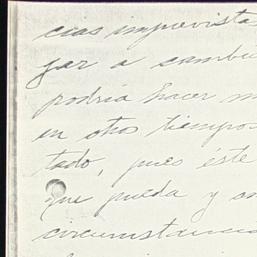 cias imprevista
gar a cambi
podría hacer m
en otros tiempos
tado, pues éste
que pueda y en
circunstancia